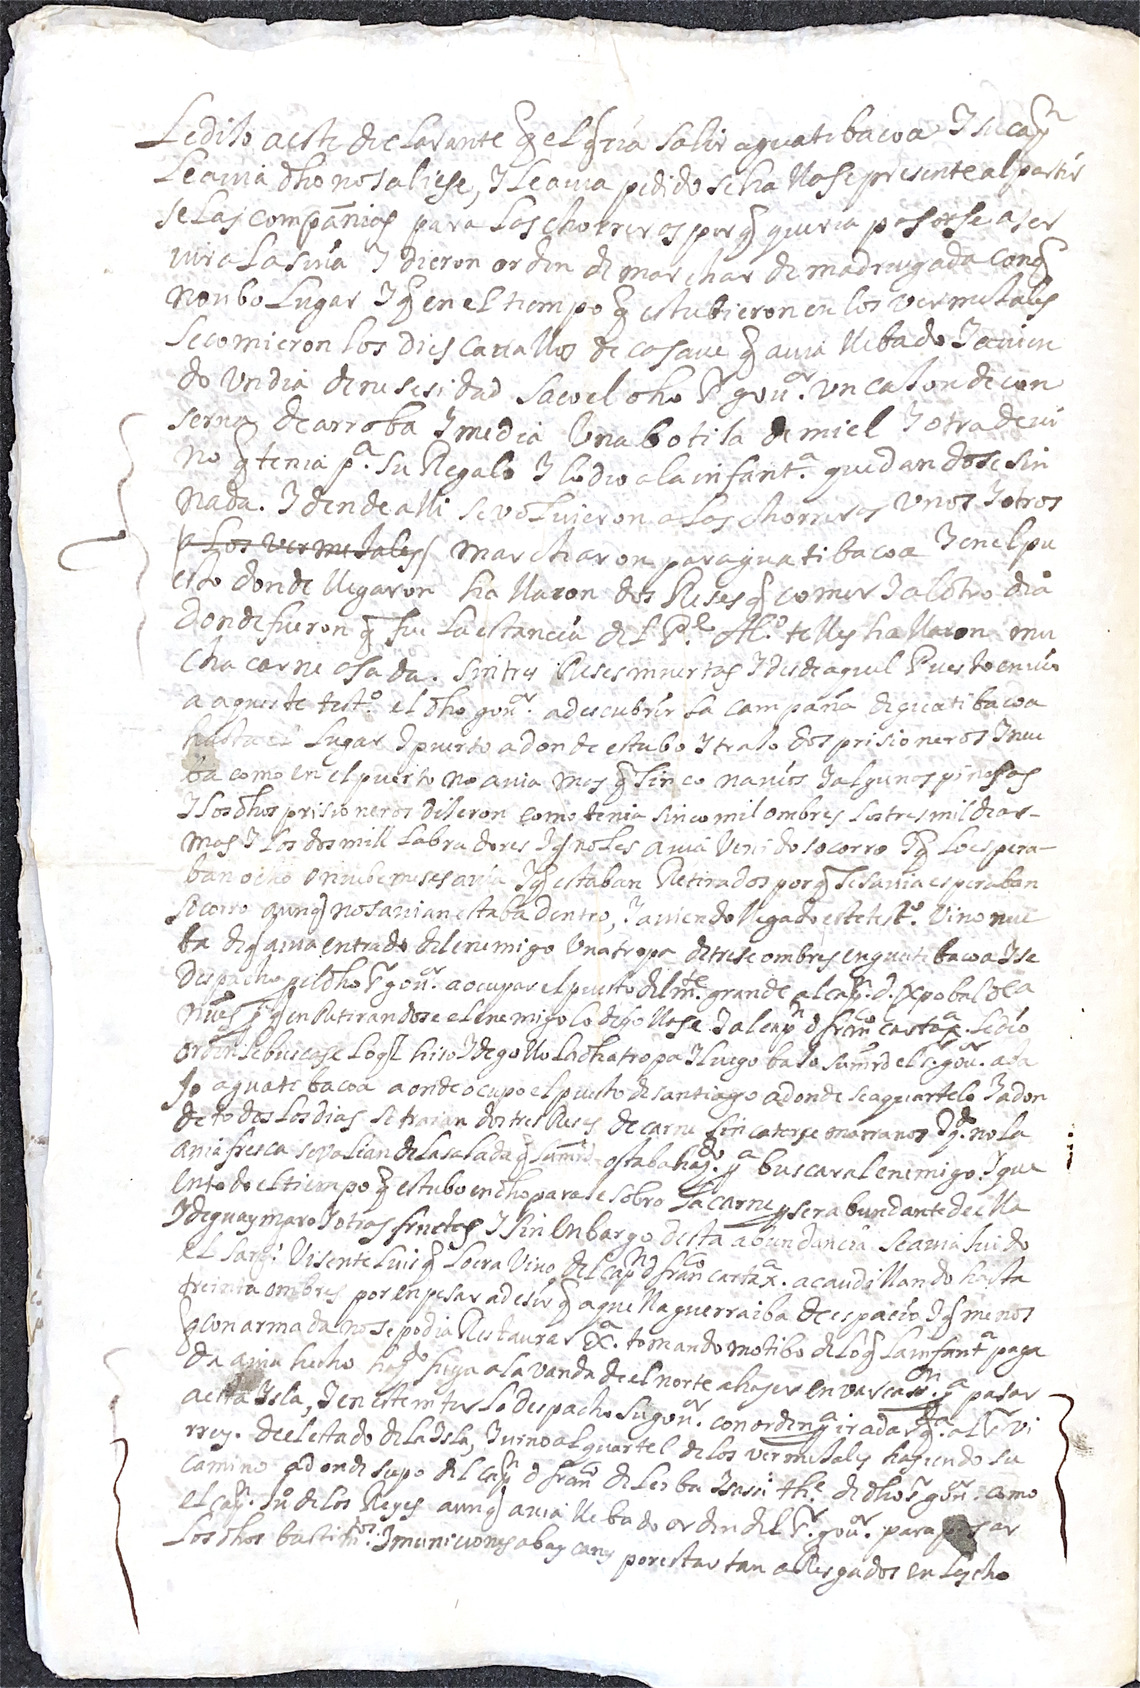 Le diso a este declarante q el qria salir aguatibacoa I su capn
Le auia dho no saliese, I Le auia pedido se hallase presente al partir
de Las compañias para Los chorreros por q queria pasarse a ser
uir a La suia I dieron orden de marchar de madrugada conq
no ubo Lugar I q en el tiempo q estubieron en los vermesales
se comieron los dies cauallos de casaue q auia llebado I auien
do vn dia de nesesidad saco el dho sr gour. vn cason de con
serua de arroba I media Vna botisa de miel I otra de ui
no q tenia pa. su Regalo I lo dio a la infanta. quedandose sin
nada. I dende alli se voluieron a Los chorreros vnos I otros
a Los vermesales / marcharon para guatibacoa I en el pu
esto donde llegaron hallaron dos Reses q comer I al otro dia
Donde fueron q fue La estancia del Pe Alo. telles hallaron mu
cha carne asada. sin tres Reses muertas I desde aquel Puesto enuio
a aqueste testo. el dho gour. a descubrir La campaña de guatibacoa
hasta el Lugar I puerto adonde estubo I traso dos prisioneros I nue
ba como en el puerto no auia mas q sinco nauios I algunos pinasas
I Los dhos prisioneros diseron como tenia sinco mil ombres Los tres mil de ar-
mas I Los dos mill Labradores I q no Les auia Venido socorro I q Lo espera-
ban ocho o nuebe meses auia I q estaban Retirados por q
socorro aunq no sauian estaba dentro, I auiendo llegado este testo. Vino nue
ba de q auia entrado del enemigo Vna tropa de trese ombres en guatibacoa I se
Despacho pr el dho sr gour. a ocupar el puesto del mte. grande al capn. d. xpobal de a
nues pa q en Retirandose el enemigo lo degollase I al capn d franco cartaxa. se dio
orden se buscase Lo ql hiso I degollo La dha tropa I Luego baso su mrd el sr. gour. aba
so aguatibacoa a onde ocupo el puesto de santiago adonde se aquartelo I adon
de todos Los dias se traian dos tres Reses de carne sin catorse marranos I qdo. no La
auia fresca se valian de La salada q su mrd. estaba hasdo. pa buscar al enemigo. I que
en todo el tiempo q estubo en dho parase sobro La carne pr ser abundante de ella
I de guaymaro I otras frutas I sin enbargo desta abundancia se auia huido
el sargt. Visente Luis q Lo era Viuo del capn d franco cartaxa. acaudillando hasta
treinta ombres por enpesar a desir q aquella guerra iba de espacio I q menos
q con armada no se podia Restaurar xa. tomando motibo de Lo q La infanta paga
da auia hecho hasdo fuga a la vanda de el norte a haser enuarcasson pa pasar
a esta Isla, I en este interLo despacho su gour. con orden pa ir a dar qta. al sr vi
rrey. de el estado de La Isla, I vino al quartel de los vermesales hasiendo su
camino adonde supo del capn d franco de Leiba Isassi the. de dho sr gour. como
el capn. Ju de los Reyes aunq auia llebado orden del sr. gour. para pasar
Los dhos bastimtos. I municiones a bay canes por estar tan aResgados en Los cho